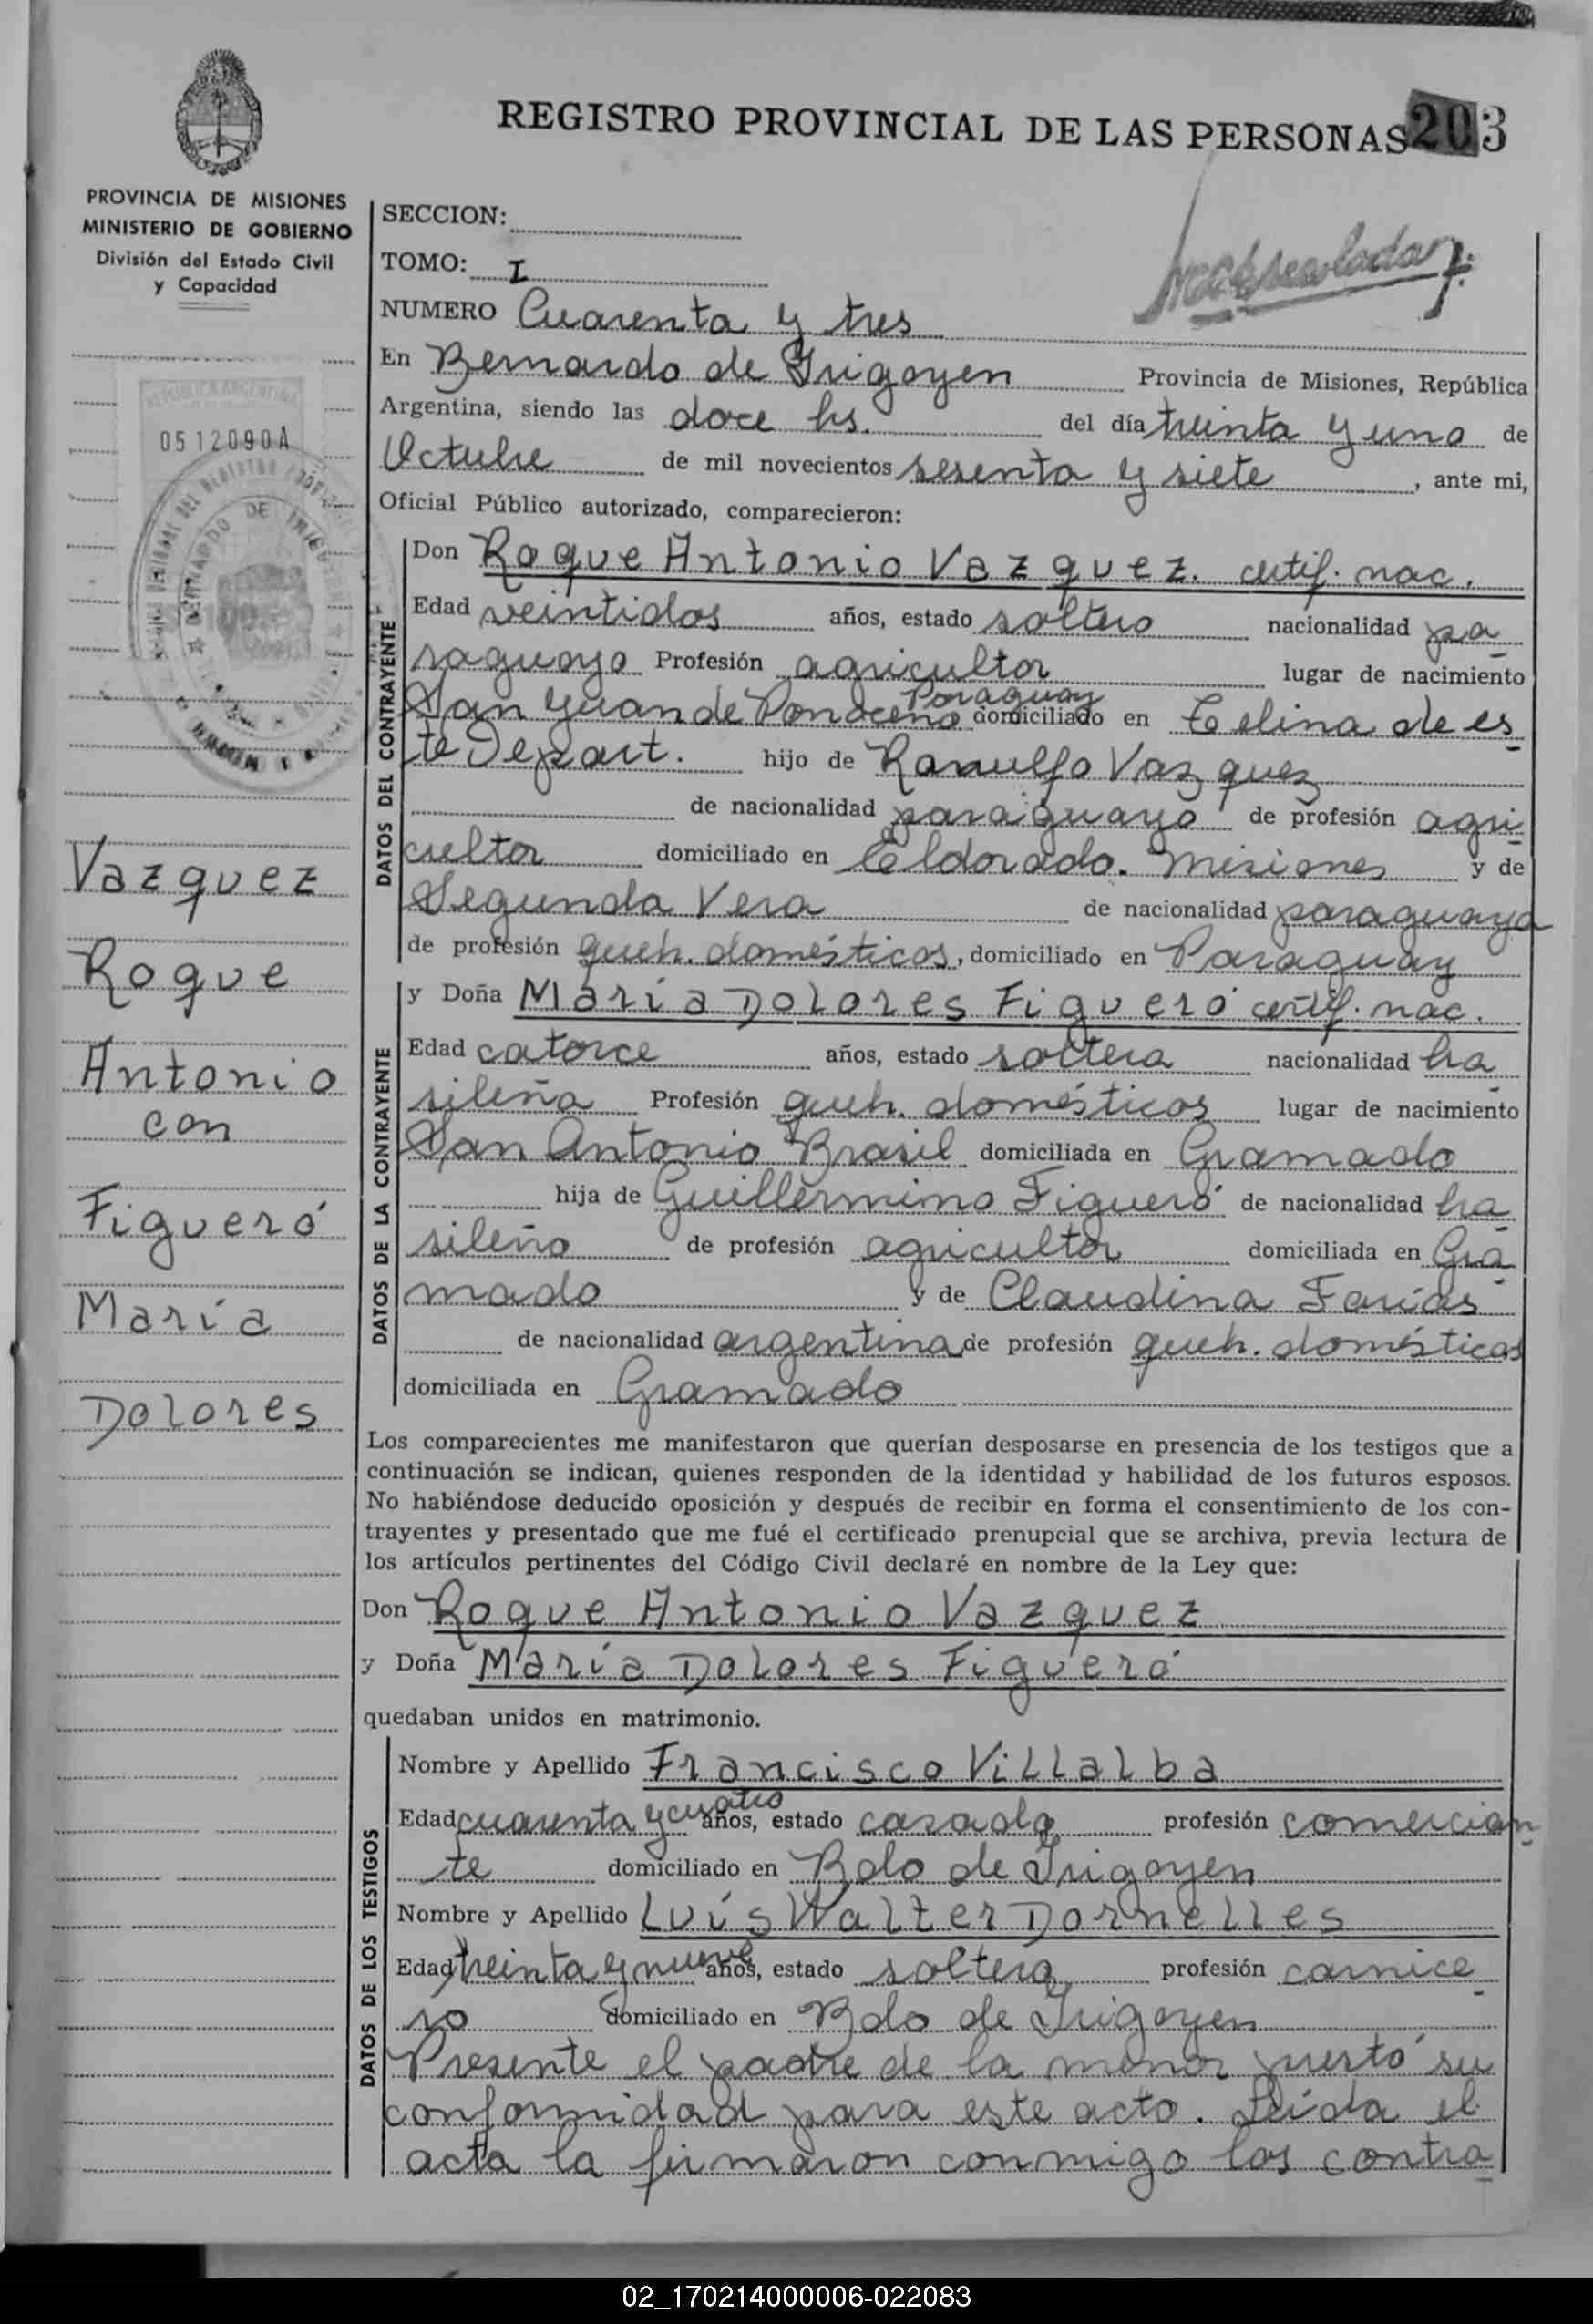 REGISTRO PROVINCIAL DE LAS PERSONAS 203
PROVINCIA DE MISIONES
MINISTERIO DE GOBIERNO
División del Estado Civil
y Capacidad
REPUBLICA ARGENTINA
0512090A
Vazquez
Roque
Antonio
con
Figueró
María
Dolores
SECCION:
TOMO: I
NUMERO Cuarenta y tres
En Bernardo de Irigoyen Provincia de Misiones, República
Argentina, siendo las doce hs. del día treinta y uno de
Octubre de mil novecientos sesenta y siete, ante mi,
Oficial Público autorizado, comparecieron:
DATOS DEL CONTRAYENTE
Don Roque Antonio Vazquez. certif. nac.
Edad veintidos años, estado soltero nacionalidad pa
raguayo Profesión agricultor lugar de nacimiento
Paraguay
San Juan de domiciliado en Celina de es
te Depart. hijo de Ranulfo Vazquez
de nacionalidad paraguayo de profesión agri
cultor domiciliado en Eldorado. Misiones y de
Segunda Vera de nacionalidad paraguaya
de profesión queh. domésticos, domiciliado en Paraguay
DATOS DE LA CONTRAYENTE
y Doña María Dolores Figueró certif. nac.
Edad catorce años, estado soltera nacionalidad bra
sileña Profesión queh. domésticos lugar de nacimiento
San Antonio Brasil domiciliada en Gramado
hija de Guillermino Figueró de nacionalidad bra
sileño de profesión agricultor domiciliada en Gra
mado y de Claudina Farías
de nacionalidad argentina de profesión queh. domésticos
domiciliada en Gramado
Los comparecientes me manifestaron que querían desposarse en presencia de los testigos que a
continuación se indican, quienes responden de la identidad y habilidad de los futuros esposos.
No habiéndose deducido oposición y después de recibir en forma el consentimiento de los con-
trayentes y presentado que me fué el certificado prenupcial que se archiva, previa lectura de
los artículos pertinentes del Código Civil declaré en nombre de la Ley que:
Don Roque Antonio Vazquez
y Doña María Dolores Figueró
quedaban unidos en matrimonio.
DATOS DE LOS TESTIGOS
Nombre y Apellido Francisco Villalba
Edad cuarenta y cuatro años, estado casado profesión comercian
te domiciliado en Bdo de Irigoyen
Nombre y Apellido Luís Walter Dornelles
Edad treinta y nueve años, estado soltero profesión carnice
ro domiciliado en Bdo de Irigoyen
Presente el padre de la menor prestó su
conformidad para este acto. Leída el
acta la firmaron conmigo los contra
02_170214000006-022083